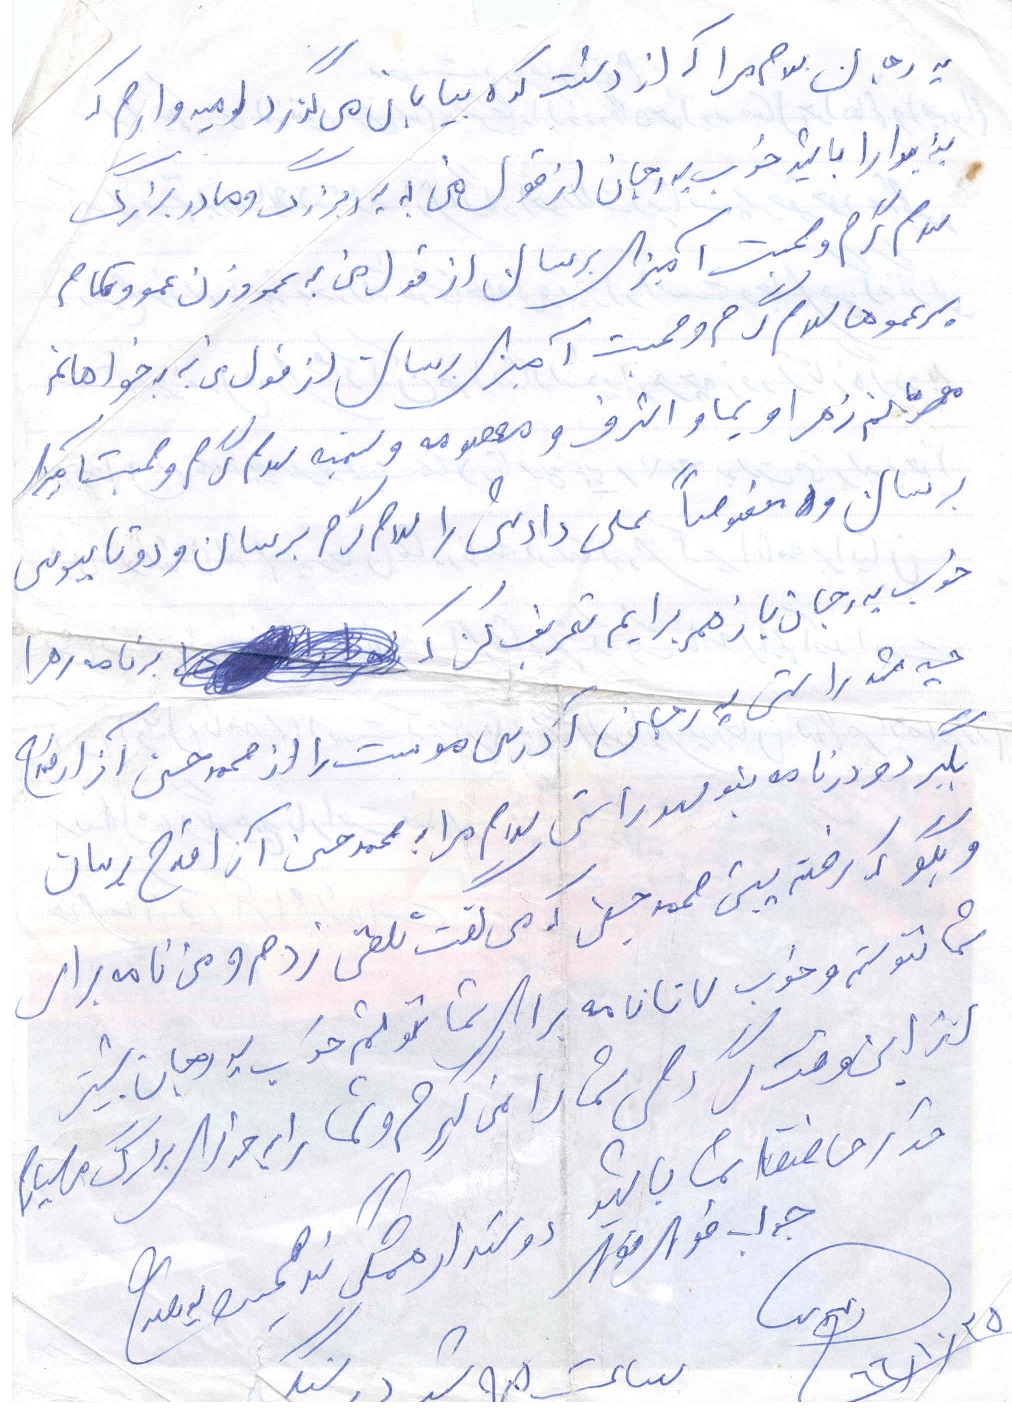 پدر جان سلام مرا که از دشت کوه بیابان می گذرد امیدوارم که
پذیرا باشید خوب پدرجان از قول من به پدربزرگ و مادربزرگ
سلام گرم و محبت آمیز برسان از قول من به عمو و زن عمو و تمام
پسرعموها سلام گرم و محبت آمیز برسان از قول من به خواهران
مهربانم زهرا و یما و اشرف و معصومه و سلام گرم و محبت آمیز
برسان و مخصوصاً علی داداش را سلام گرم برسان و دو تا ببوس
خوب پدرجان باز هم برایم تعریف کن که برنامه زهرا
چه شد راستی پدر جان آدرس را از محمدحسن
بگیر و در نامه بنویسد راستی سلام مرا به محمدحسن برسان
و بگو که رفته پیش محمد که می گفت تلفن زدم و من نامه برای
شما ننوشتم و خوب تا نامه برای شما ننوشتم خوب پدرجان بیشتر
از این وقت شما را نمی گیرم و شما را به خدای بزرگ می سپارم
خدا حافظ شما باشید
جواب فوری فوری دوستدار همگی شما
ساعت ۹/۵ شب در سنگر
۶۶/۱۰/۲۵